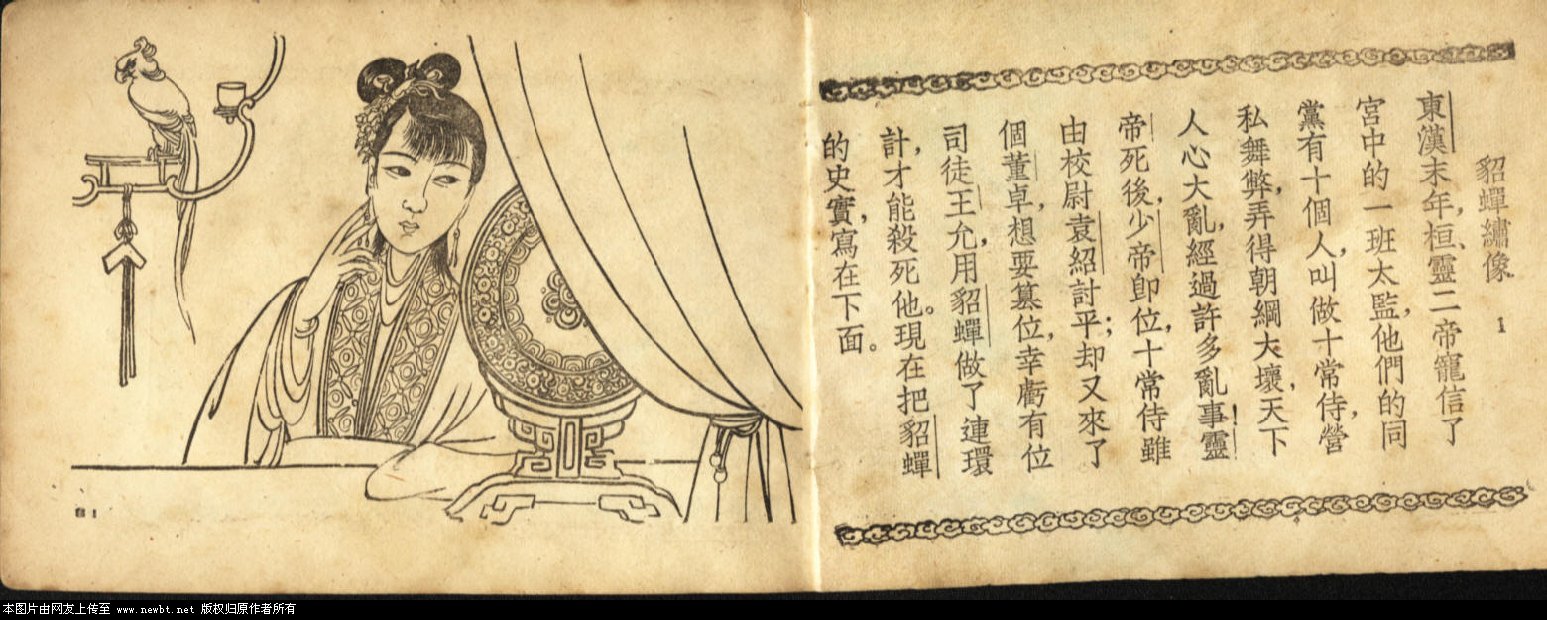 貂蟬繡像 1
東漢末年,桓、靈二帝寵信了
宮中的一班太監,他們的同
黨有十個人,叫做十常侍,營
私舞弊,弄得朝綱大壞,天下
人心大亂,經過許多亂事!靈
帝死後,少帝卽位,十常侍雖
由校尉袁紹討平;却又來了
個董卓,想要篡位,幸虧有位
司徒王允,用貂蟬做了連環
計,才能殺死他。現在把貂蟬
的史實,寫在下面。
本图片由网友上传至 www.newbt.net 版权归原作者所有